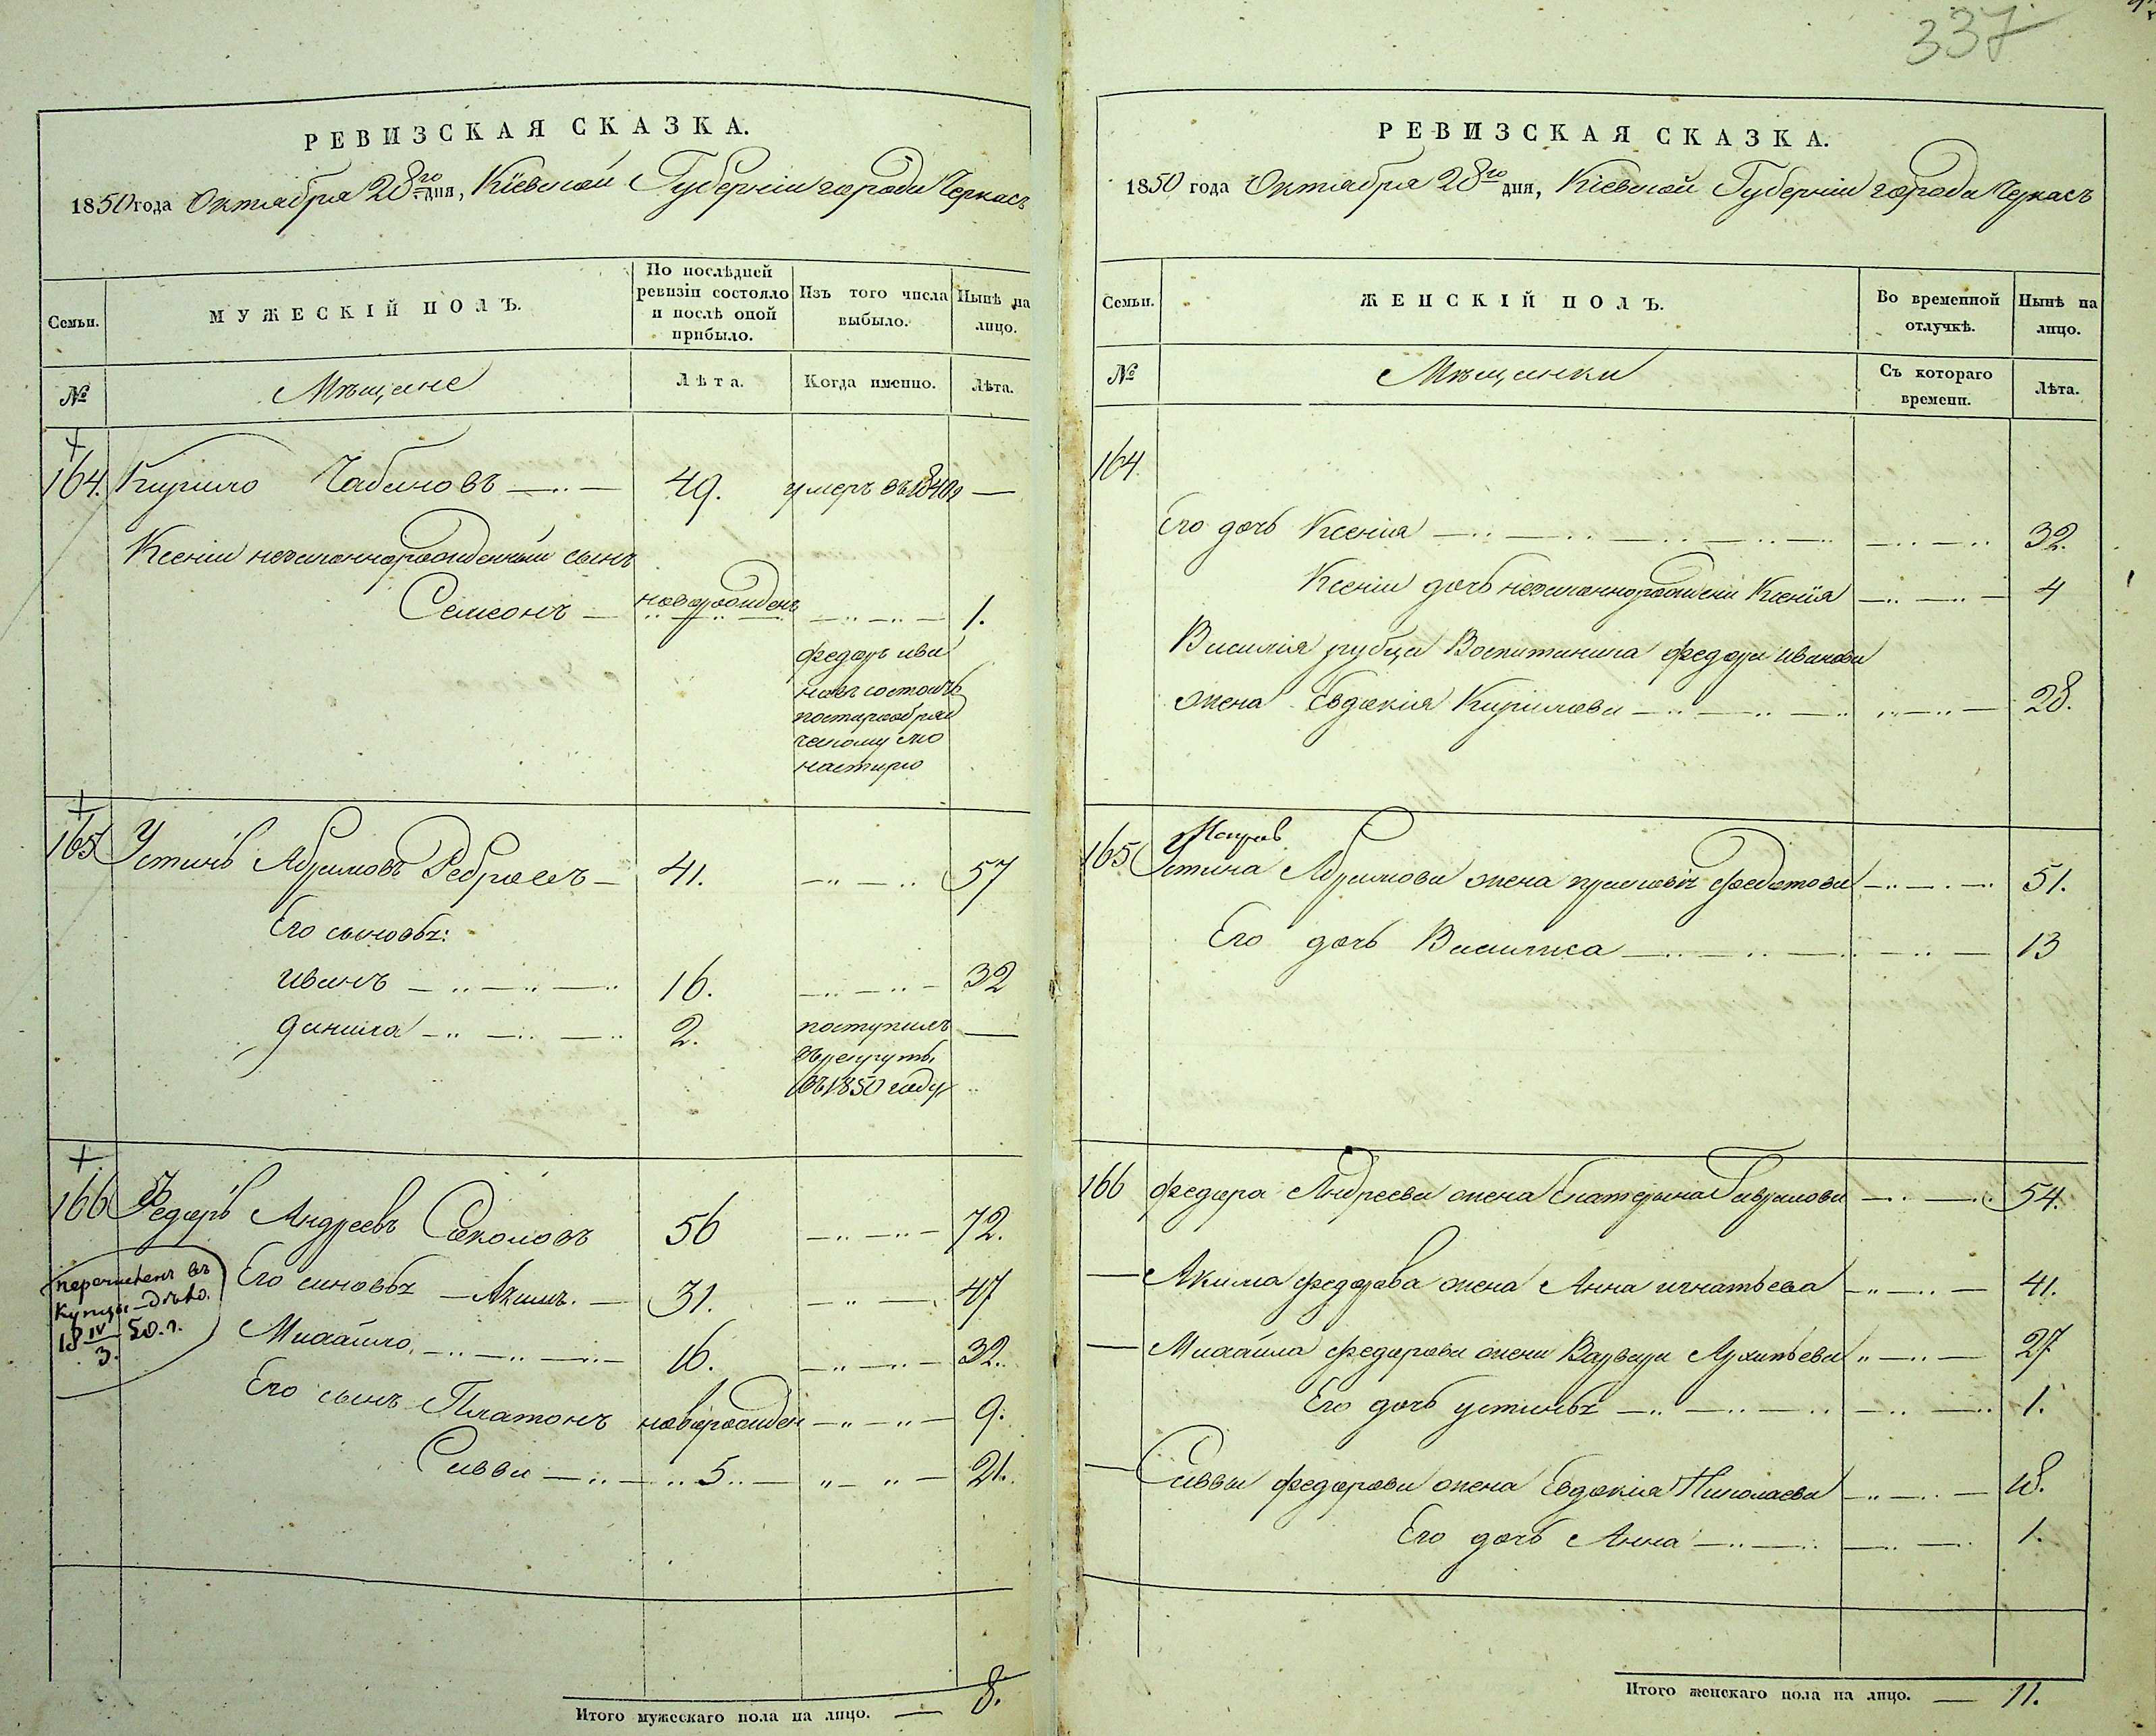 337
РЕВИЗСКАЯ СКАЗКА.
1850 года Октября 28го дня, Кіевской Губерніи города Черкасъ
Семьи.
МУЖЕСКІЙ ПОЛЪ.
По послѣдней ревизіи состояло и послѣ оной прибыло.
Изъ того числа выбыло.
Нынѣ на лицо.
№
Мѣщане
Лѣта.
Когда именно.
Лѣта.
164. Кирило Чабановъ 49. умеръ въ 1840
Ксеніи незаконнорожденный сынъ
Семеонъ новорожденъ 1.
федоръ ива
новъ состоитъ
по старообряд
ческому мо
настирю
165 Устинъ Абрамовъ 41. 57
Его сыновьѣ:
иванъ 16. 32
данила 2. поступилъ
въ рекруты
въ 1850 году
166 Федоръ Андреевъ Соколовъ 56 72.
перечисленъ въ
купцы - дѣло.
18 IV/3. 50.г.
Его синовьѣ Акимъ. 31. 47
Михайло 16. 32.
Его сынъ Платонъ новорожден 9.
Савва 5 21.
Итого мужескаго пола на лицо. 8.
РЕВИЗСКАЯ СКАЗКА.
1850 года Октября 28го дня, Кіевской Губерніи города Черкасъ
Семьи.
ЖЕНСКІЙ ПОЛЪ.
Во временной отлучкѣ.
Нынѣ на лицо.
№
Мѣщанки
Съ котораго времени.
Лѣта.
164.
Его дочь Ксенія 32.
Ксеніи дочь незаконнорожден Ксенія 4
Василія рубца Воспитаника федора иванова
жена Евдокія Кирилова 28.
165 Устина Абрамова жена Федотова 51.
Его дочь Василиса 13
166 федора Андреева жена Екатерина Гаврилова 54.
Акима федорова жена Анна игнатьева 41.
Михайла федорова жена Варвара Архипьева 27
Его дочь устинья 1.
Саввы федорова жена Евдокія Николаева 18.
Его дочь Анна 1.
Итого женскаго пола на лицо. 11.